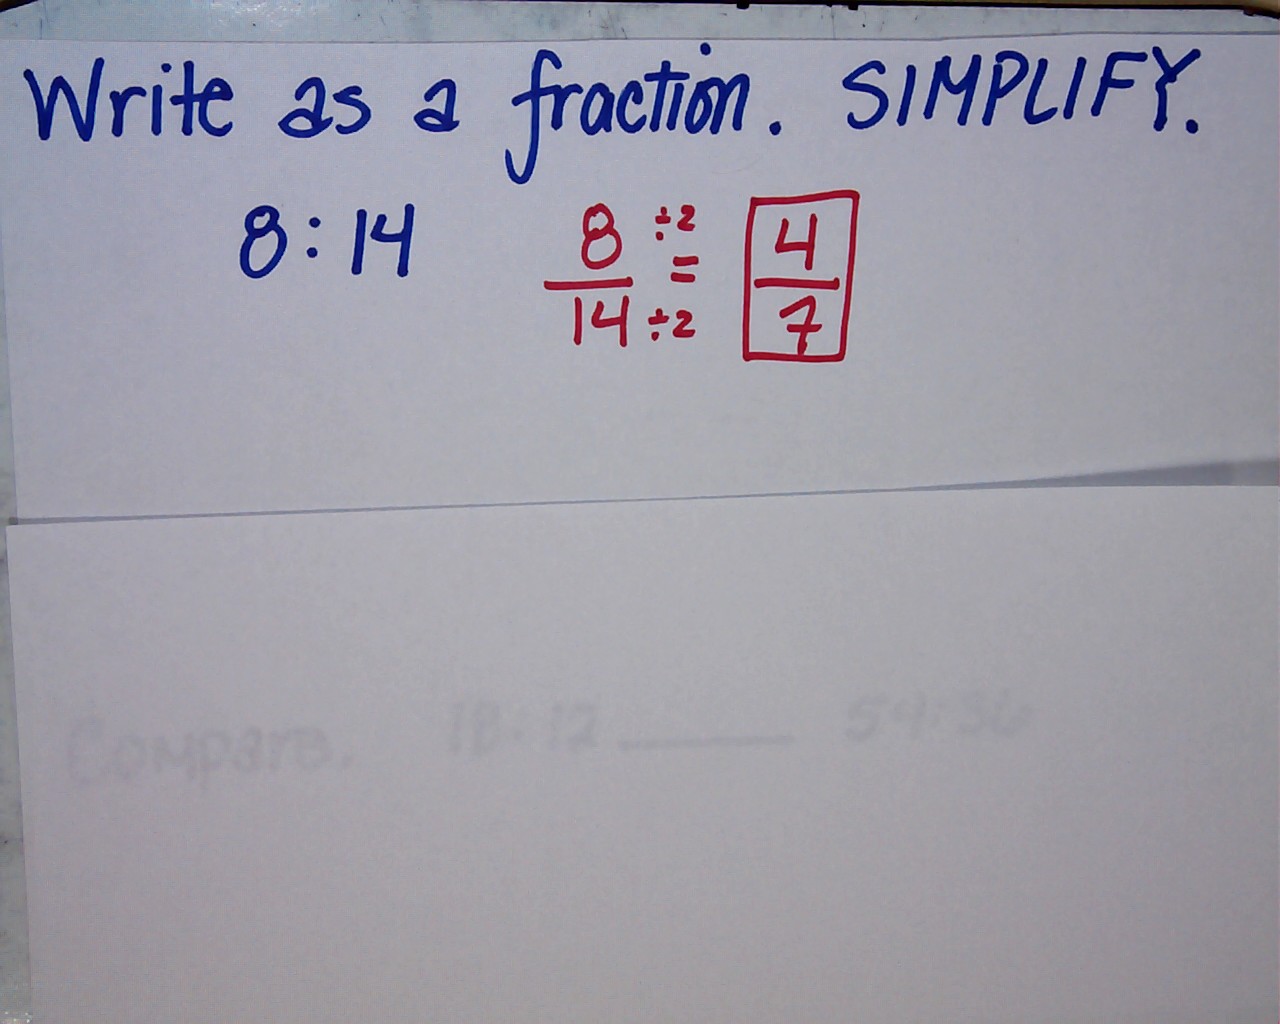 Write as a fraction. SIMPLIFY.
8:14 8/14 ÷2 = ÷2 4/7
Compare. 18:12 ____ 54:36